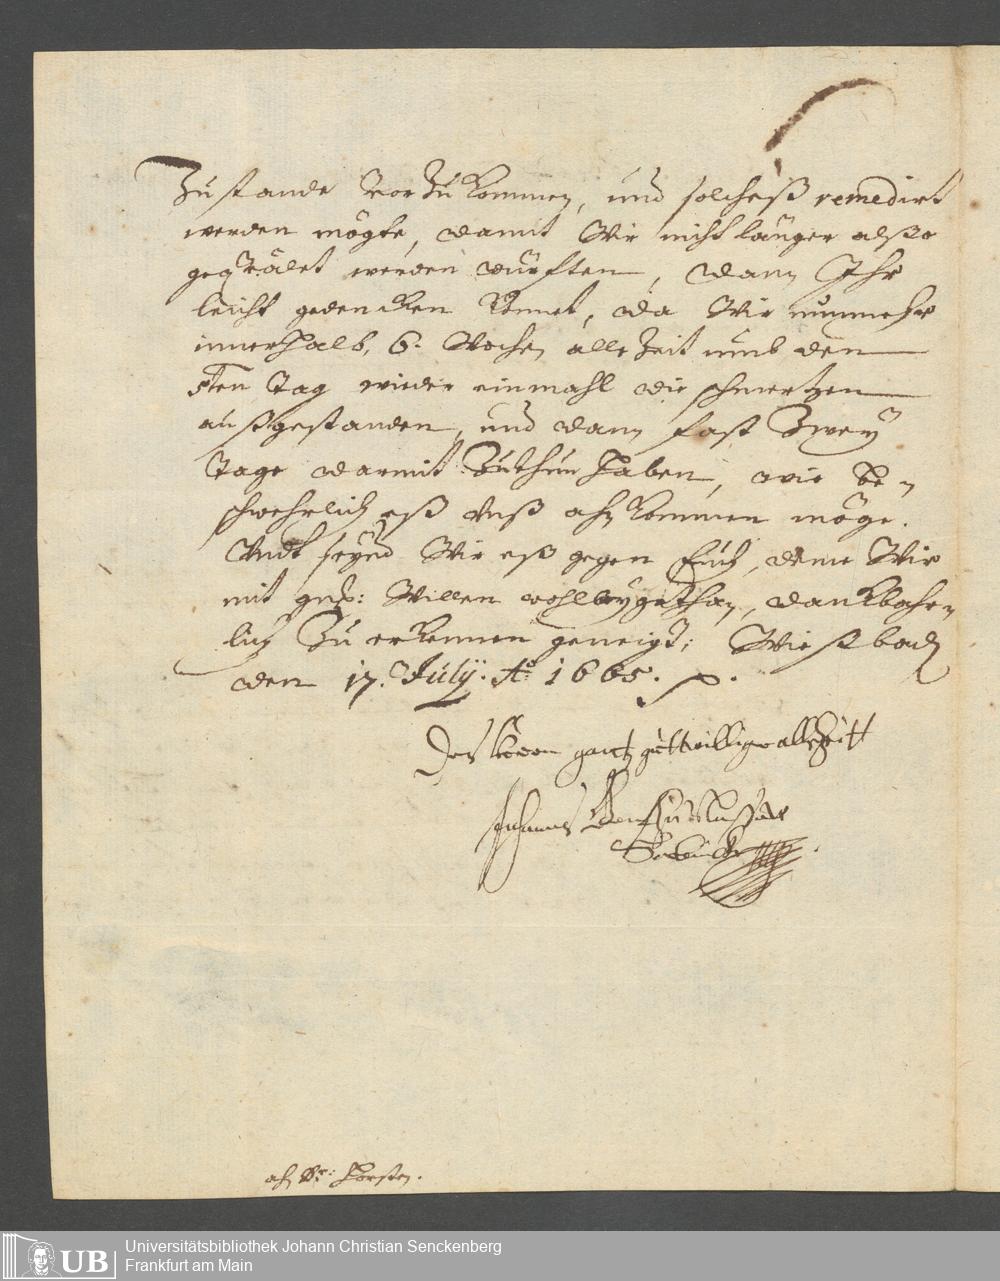 Zustande vor zu kommen, und solcheß remedirt
werden mögte, damit Wir nicht länger alßo
gequälet werden dürfften, dann Ihr
leicht gedencken könnet, da Wir nunmehr
innerhalb, 6. Wochen alle Zeit umb den
5ten Tag wieder einmahl die schmertzen
außgestanden, und dann fast Zwey
Tage darmit Zuthun haben, wie be-
schwehrlich eß Unß ahn kommen möge.
Undt seynd Wir eß gegen Euch, deme Wir
mit gnd: Willen wohlbeygethan, danckbahr-
lich Zu erkennen geneigt; Wießbad
den 17. Julÿ. Ao 1665.
Des Herrn gantz guttwilliger allezeitt
Johannes
ahn Dr: Horsten.
Universitätsbibliothek Johann Christian Senckenberg
Frankfurt am Main
UB